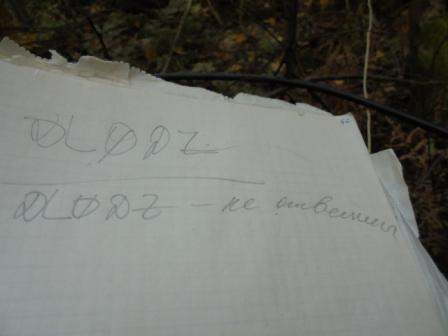 DLØDZ
DLØDZ – не ответили